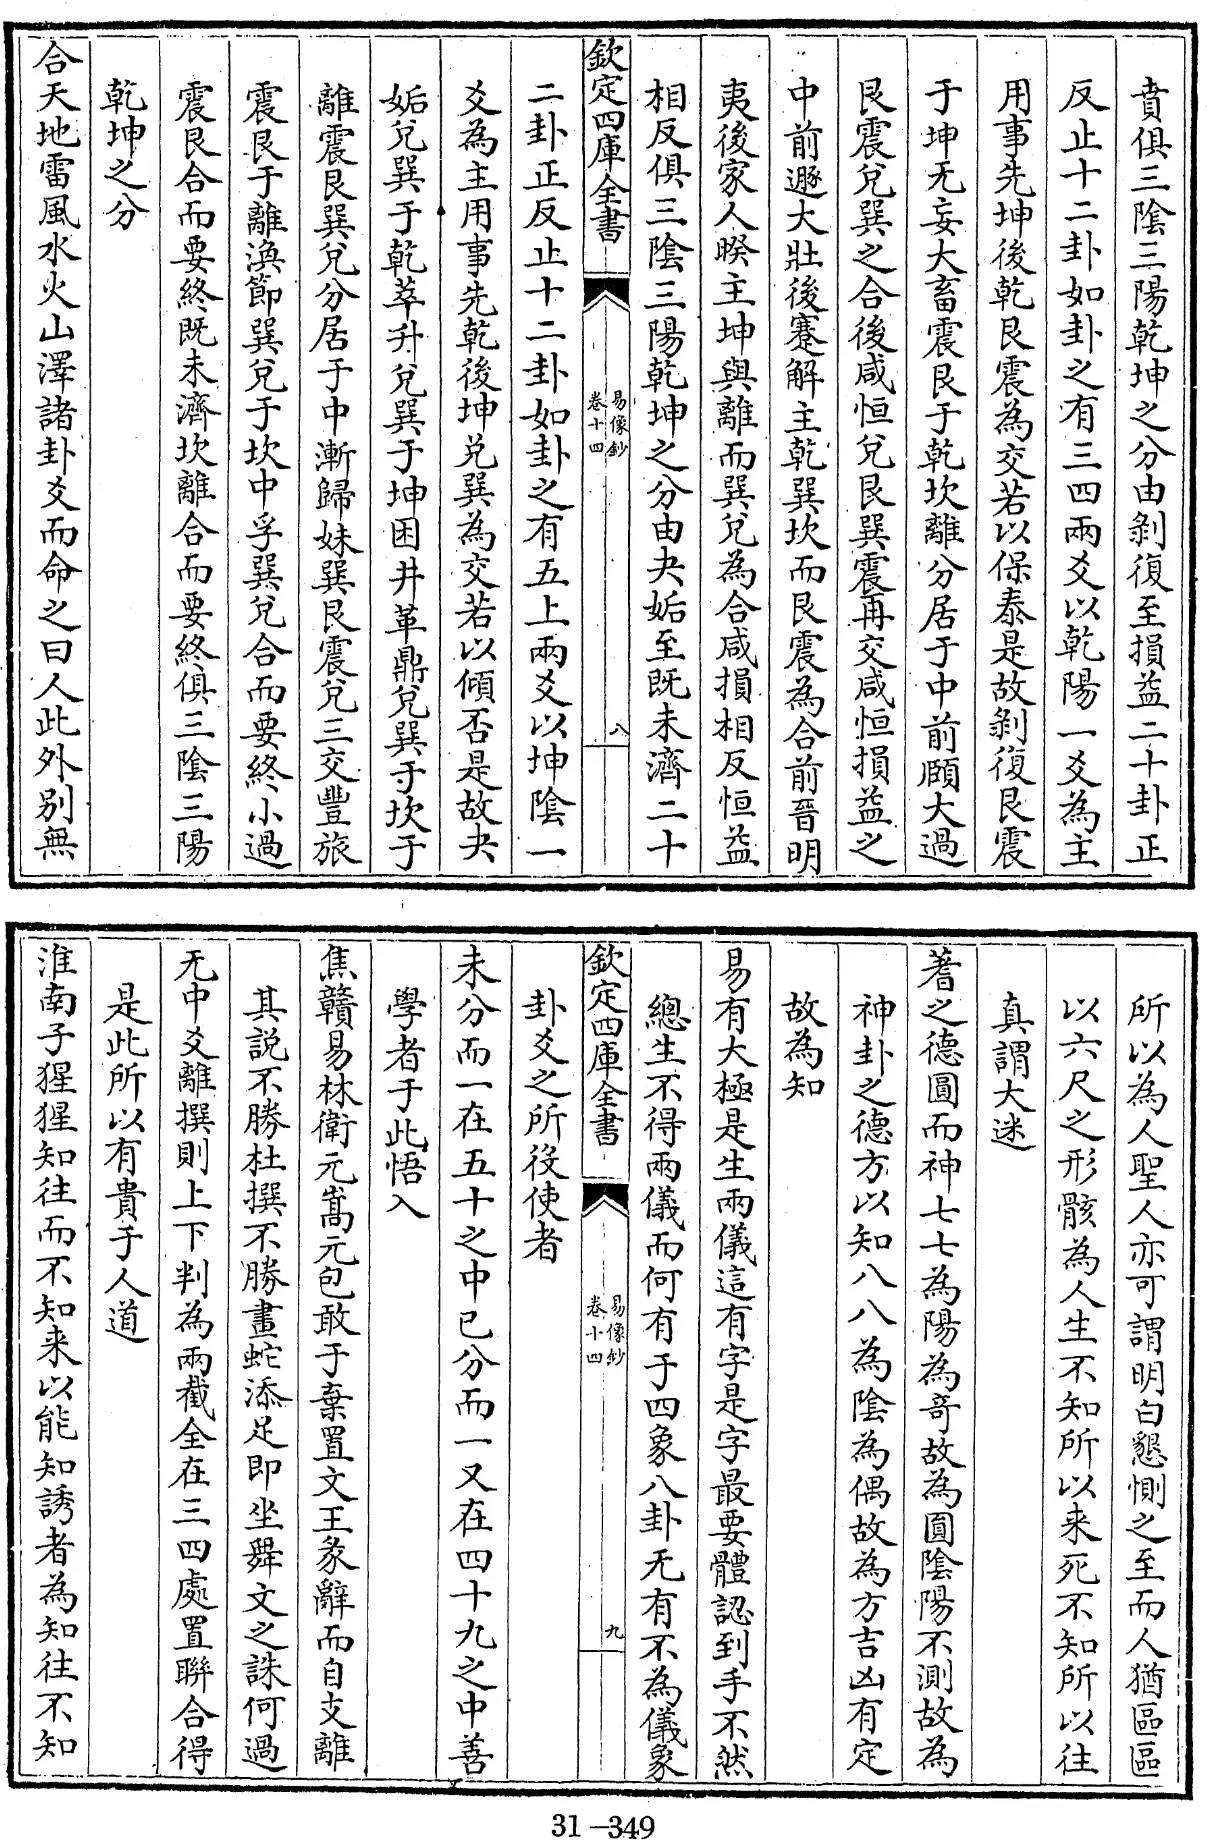 賁俱三陰三陽乾坤之分由剝復至損益二十卦正
反止十二卦如卦之有三四兩爻以乾陽一爻為主
用事先坤後乾艮震為交若以保泰是故剝復艮震
于坤无妄大畜震艮于乾坎離分居于中前頤大過
艮震兌巽之合後咸恒兌艮巽震再交咸恒損益之
中前遯大壯後蹇解主乾巽坎而艮震為合前晉明
夷後家人睽主坤與離而巽兌為合咸損相反恒益
相反俱三陰三陽乾坤之分由夬姤至既未濟二十
欽定四庫全書
易像鈔
卷十四
八
二卦正反止十二卦如卦之有五上兩爻以坤陰一
爻為主用事先乾後坤兌巽為交若以傾否是故夬
姤兌巽于乾萃升兌巽于坤困井革鼎兌巽于坎于
離震艮巽兌分居于中漸歸妹巽艮震兌三交豐旅
震艮于離渙節巽兌于坎中孚巽兌合而要終小過
震艮合而要終既未濟坎離合而要終俱三陰三陽
乾坤之分
合天地雷風水火山澤諸卦爻而命之曰人此外別無
所以為人聖人亦可謂明白懇惻之至而人猶區區
以六尺之形骸為人生不知所以来死不知所以往
真謂大迷
蓍之德圓而神七七為陽為奇故為圓陰陽不測故為
神卦之德方以知八八為陰為偶故為方吉凶有定
故為知
易有大極是生兩儀這有字是字最要體認到手不然
總生不得兩儀而何有于四象八卦无有不為儀象
欽定四庫全書
易像鈔
卷十四
九
卦爻之所役使者
未分而一在五十之中已分而一又在四十九之中善
學者于此悟入
焦贛易林衛元嵩元包敢于棄置文王彖辭而自支離
其說不勝杜撰不勝畫蛇添足即坐舞文之誅何過
无中爻離撰則上下判為兩截全在三四處置聯合得
是此所以有貴于人道
淮南子猩猩知往而不知来以能知誘者為知往不知
31-349